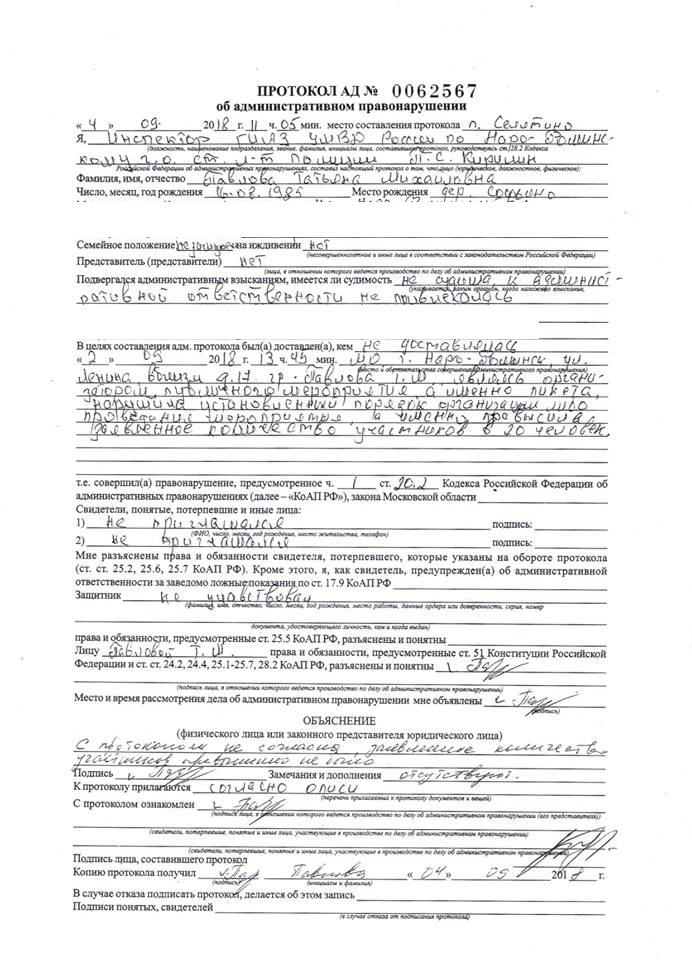 ПРОТОКОЛ АД № 0062567
об административном правонарушении
« 4 » 09. 2018 г. 11 ч. 05 мин. место составления протокола п. Селятино
Я, Инспектор УМВД России по Наро-Фоминс-
(должность, наименование подразделения, звание, фамилия, инициалы лица, составившего протокол, руководствуясь ст.28.2 Кодекса
кому г.о. ст. л-т полиции П.С. Кирилин
Российской Федерации об административных правонарушениях, составил настоящий протокол о том, что лицо (юридическое, должностное, физическое):
Фамилия, имя, отчество Павлова Татьяна Михайловна
Число, месяц, год рождения 16.08.1985 Место рождения дер. Софьино
Семейное положение на иждивении нет
(несовершеннолетние и иные лица в соответствии с законодательством Российской Федерации)
Представитель (представители) нет
(лица, в отношении которого ведется производство по делу об административном правонарушении)
Подвергался административным взысканиям, имеется ли судимость не судима, к админист-
(указывается, каким органом, когда наложено взыскание,
ративной ответственности не привлекалась
В целях составления адм. протокола был(а) доставлен(а), кем не доставлялась
« 2 » 09 2018 г. 13 ч. 45 мин. МО г. Наро-Фоминск, ул.
(место и обстоятельства совершения административного правонарушения)
Ленина, вблизи д.17. гр. Павлова Т.М. являясь органи-
затором публичного мероприятия, а именно пикета,
нарушила установленный порядок организации либо
проведения мероприятия, а именно превысила
заявленное количество участников в 20 человек.
т.е. совершил(а) правонарушение, предусмотренное ч. 1 ст. 20.2 Кодекса Российской Федерации об
административных правонарушениях (далее – «КоАП РФ»), закона Московской области
Свидетели, понятые, потерпевшие и иные лица:
1) не приглашались подпись:
(ФИО, число, месяц, год рождения, место жительства, телефон)
2) не приглашались подпись:
Мне разъяснены права и обязанности свидетеля, потерпевшего, которые указаны на обороте протокола
(ст. ст. 25.2, 25.6, 25.7 КоАП РФ). Кроме этого, я, как свидетель, предупрежден(а) об административной
ответственности за заведомо ложные показания по ст. 17.9 КоАП РФ
Защитник не участвовал
(фамилия, имя, отчество, число, месяц, год рождения, место работы, данные ордера или доверенности, серия, номер
документа, удостоверяющего личность, кем и когда выдан)
права и обязанности, предусмотренные ст. 25.5 КоАП РФ, разъяснены и понятны
Лицу Павловой Т.М. права и обязанности, предусмотренные ст. 51 Конституции Российской
Федерации и ст. ст. 24.2, 24.4, 25.1-25.7, 28.2 КоАП РФ, разъяснены и понятны
(подпись лица, в отношении которого ведется производство по делу об административном правонарушении)
Место и время рассмотрения дела об административном правонарушении мне объявлены
(подпись)
ОБЪЯСНЕНИЕ
(физического лица или законного представителя юридического лица)
С протоколом не согласна, заявленное количество
участников превышено не было.
Подпись Замечания и дополнения отсутствуют.
К протоколу прилагаются согласно описи
(перечень прилагаемых к протоколу документов и вещей)
С протоколом ознакомлен
(подпись лица, в отношении которого ведется производство по делу об административном правонарушении (его представителя))
(свидетели, потерпевшие, понятые и иные лица, участвующие в производстве по делу об административном правонарушении)
(свидетели, потерпевшие, понятые и иные лица, участвующие в производстве по делу об административном правонарушении)
Подпись лица, составившего протокол
Копию протокола получил Павлова « 04» 09 2018 г.
(подпись) (инициалы и фамилия)
В случае отказа подписать протокол, делается об этом запись
Подписи понятых, свидетелей
(в случае отказа от подписания протокола)